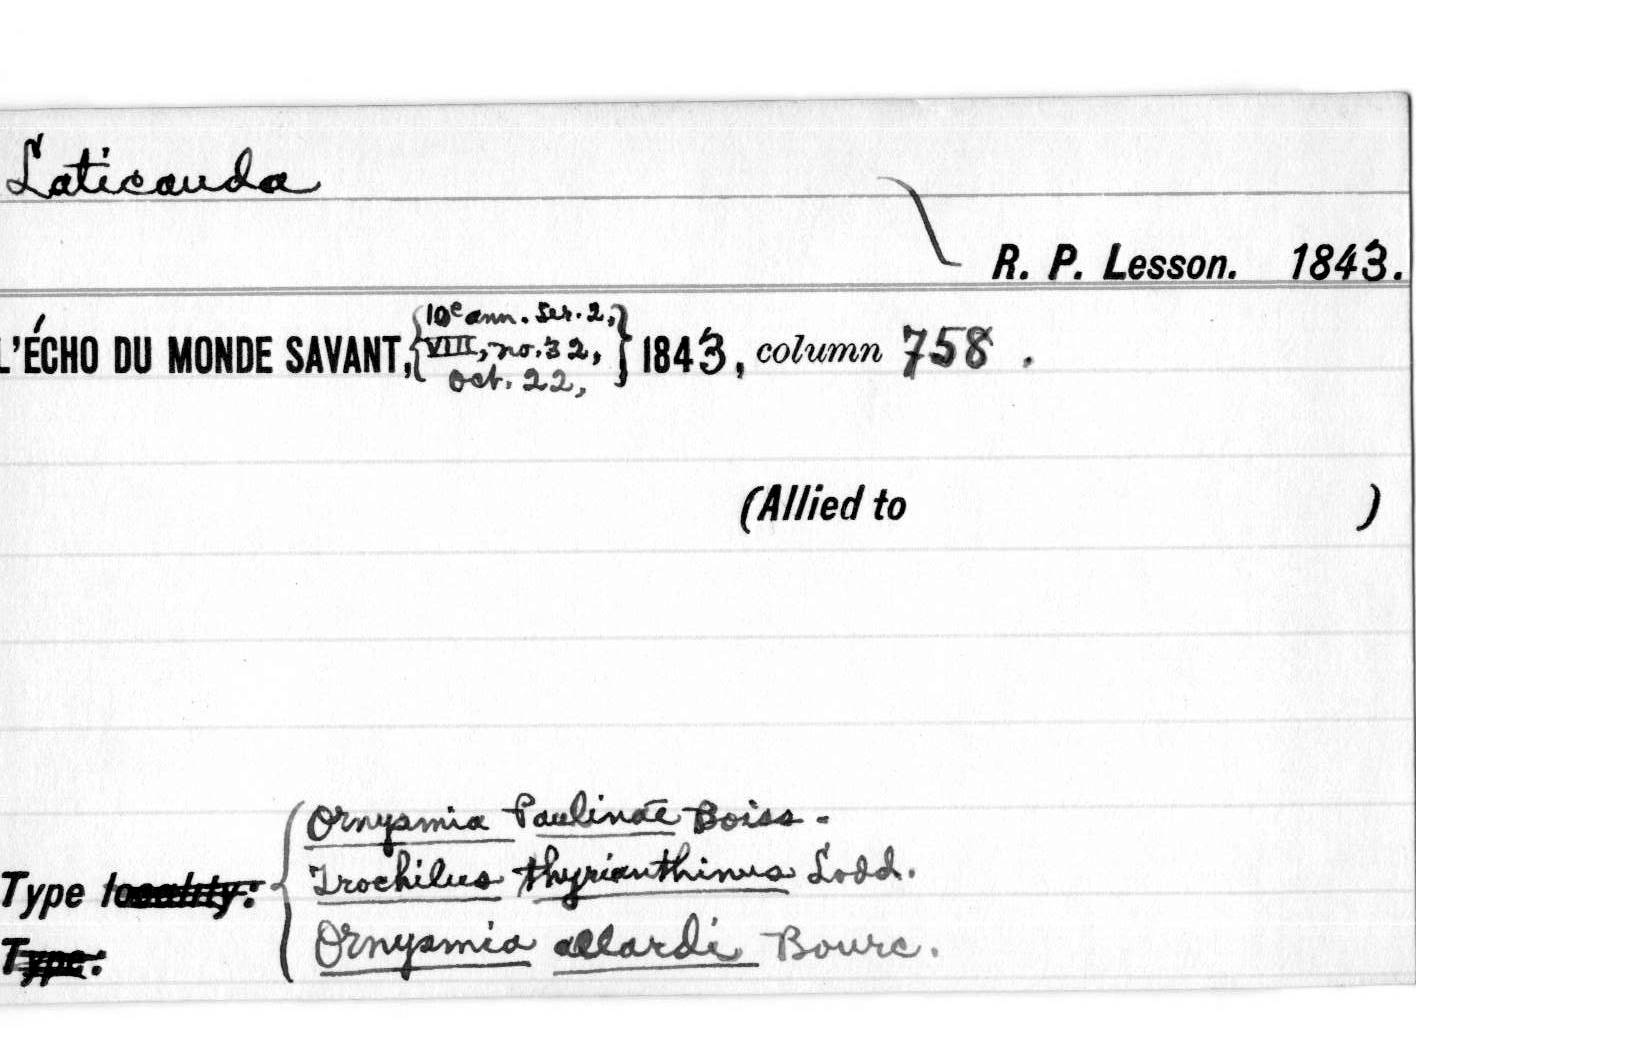 Laticauda
R. P. Lesson. 1843.
L'ÉCHO DU MONDE SAVANT, {10e ann. Ser. 2, VIII, no. 32, Oct. 22,} 1843, column 758.
(Allied to )
Ornysmia Paulinae Boiss.
Type locality: Trochilus thyrianthinus Lodd.
Type: Ornysmia allardi Bourc.